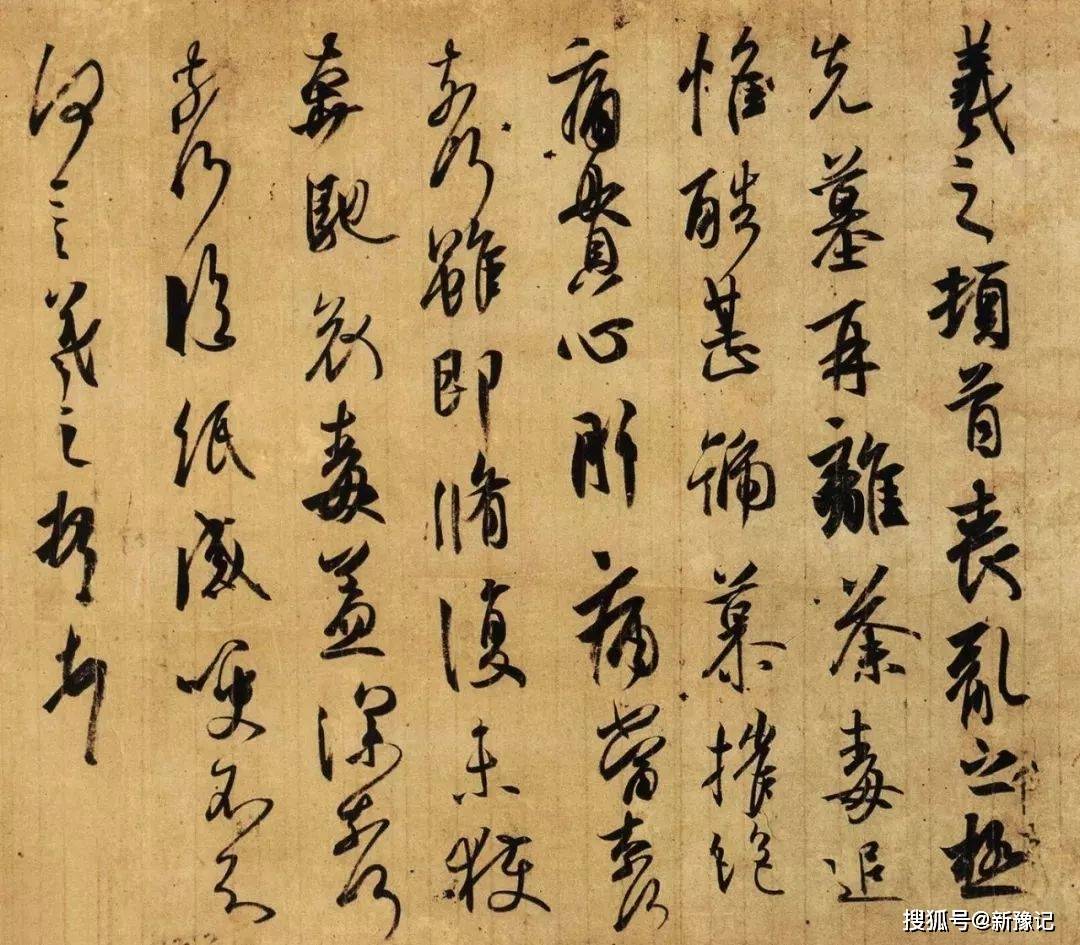 羲之頓首喪亂之極
先墓再離荼毒追
惟酷甚號慕摧絕
痛貫心肝痛當奈何
奈何雖即脩復未獲
奔馳哀毒益深奈何
奈何臨紙感哽不知
何言羲之頓首頓首
搜狐号@新豫记